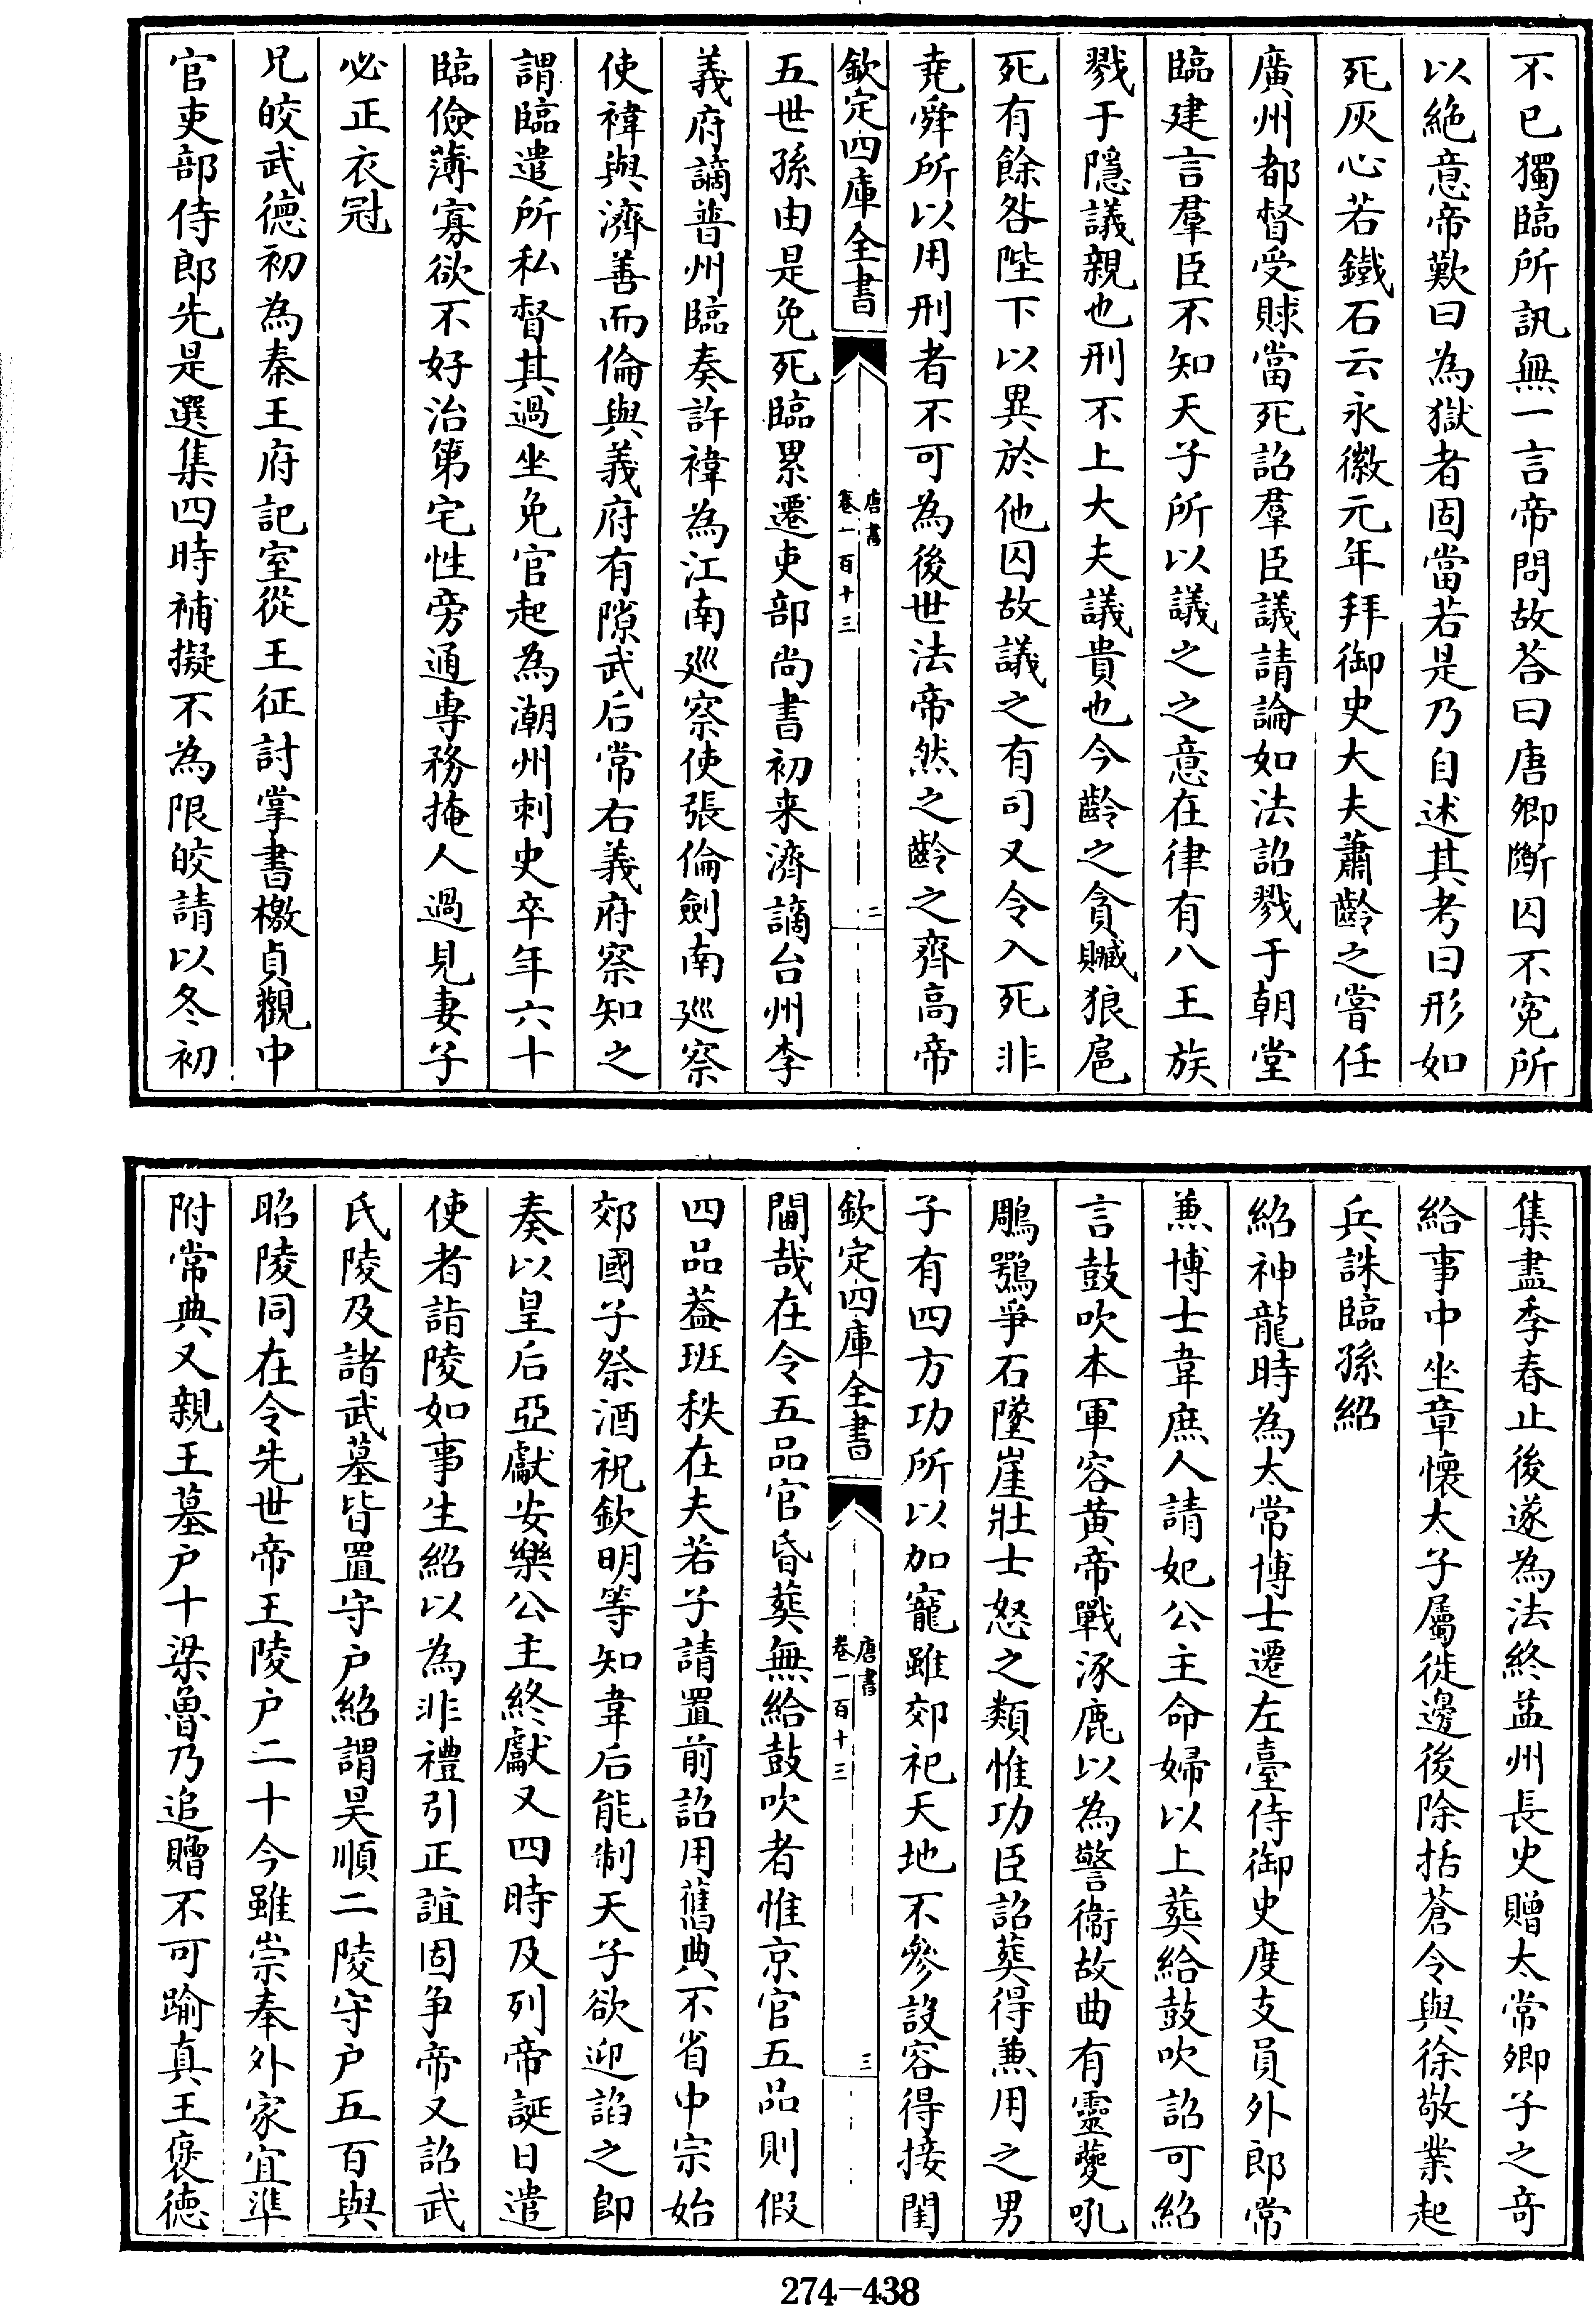 不已獨臨所訊無一言帝問故荅曰唐卿斷囚不寃所
以絶意帝歎曰為獄者固當若是乃自述其考曰形如
死灰心若鐵石云永徽元年拜御史大夫蕭齡之嘗任
廣州都督受賕當死詔羣臣議請論如法詔戮于朝堂
臨建言羣臣不知天子所以議之之意在律有八王族
戮于隱議親也刑不上大夫議貴也今齡之貪贓狼扈
死有餘咎陛下以異於他囚故議之有司又令入死非
堯舜所以用刑者不可為後世法帝然之齡之齊高帝
欽定四庫全書
唐書
卷一百十三
二
五世孫由是免死臨累遷吏部尚書初来濟謫台州李
義府謫普州臨奏許褘為江南廵察使張倫劍南廵察
使褘與濟善而倫與義府有隙武后常右義府察知之
謂臨遣所私督其過坐免官起為潮州刺史卒年六十
臨儉薄寡欲不好治第宅性旁通專務掩人過見妻子
必正衣冠
兄皎武德初為秦王府記室從王征討掌書檄貞觀中
官吏部侍郎先是選集四時補擬不為限皎請以冬初
集盡季春止後遂為法終益州長史贈太常卿子之奇
給事中坐章懷太子屬徙邊後除括蒼令與徐敬業起
兵誅臨孫紹
紹神龍時為太常博士遷左臺侍御史度支員外郎常
兼博士韋庶人請妃公主命婦以上葬給鼓吹詔可紹
言鼓吹本軍容黄帝戰涿鹿以為警衞故曲有靈夔吼
鵰鶚爭石墜崖壯士怒之類惟功臣詔葬得兼用之男
子有四方功所以加寵雖郊祀天地不參設容得接閨
欽定四庫全書
唐書
卷一百十三
三
閫哉在令五品官昏葬無給鼓吹者惟京官五品則假
四品葢班秩在夫若子請置前詔用舊典不省中宗始
郊國子祭酒祝欽明等知韋后能制天子欲迎諂之即
奏以皇后亞獻安樂公主終獻又四時及列帝誕日遣
使者詣陵如事生紹以為非禮引正誼固爭帝又詔武
氏陵及諸武墓皆置守户紹謂昊順二陵守户五百與
昭陵同在令先世帝王陵户二十今雖崇奉外家宜準
附常典又親王墓户十梁魯乃追贈不可踰真王褒德
274-438